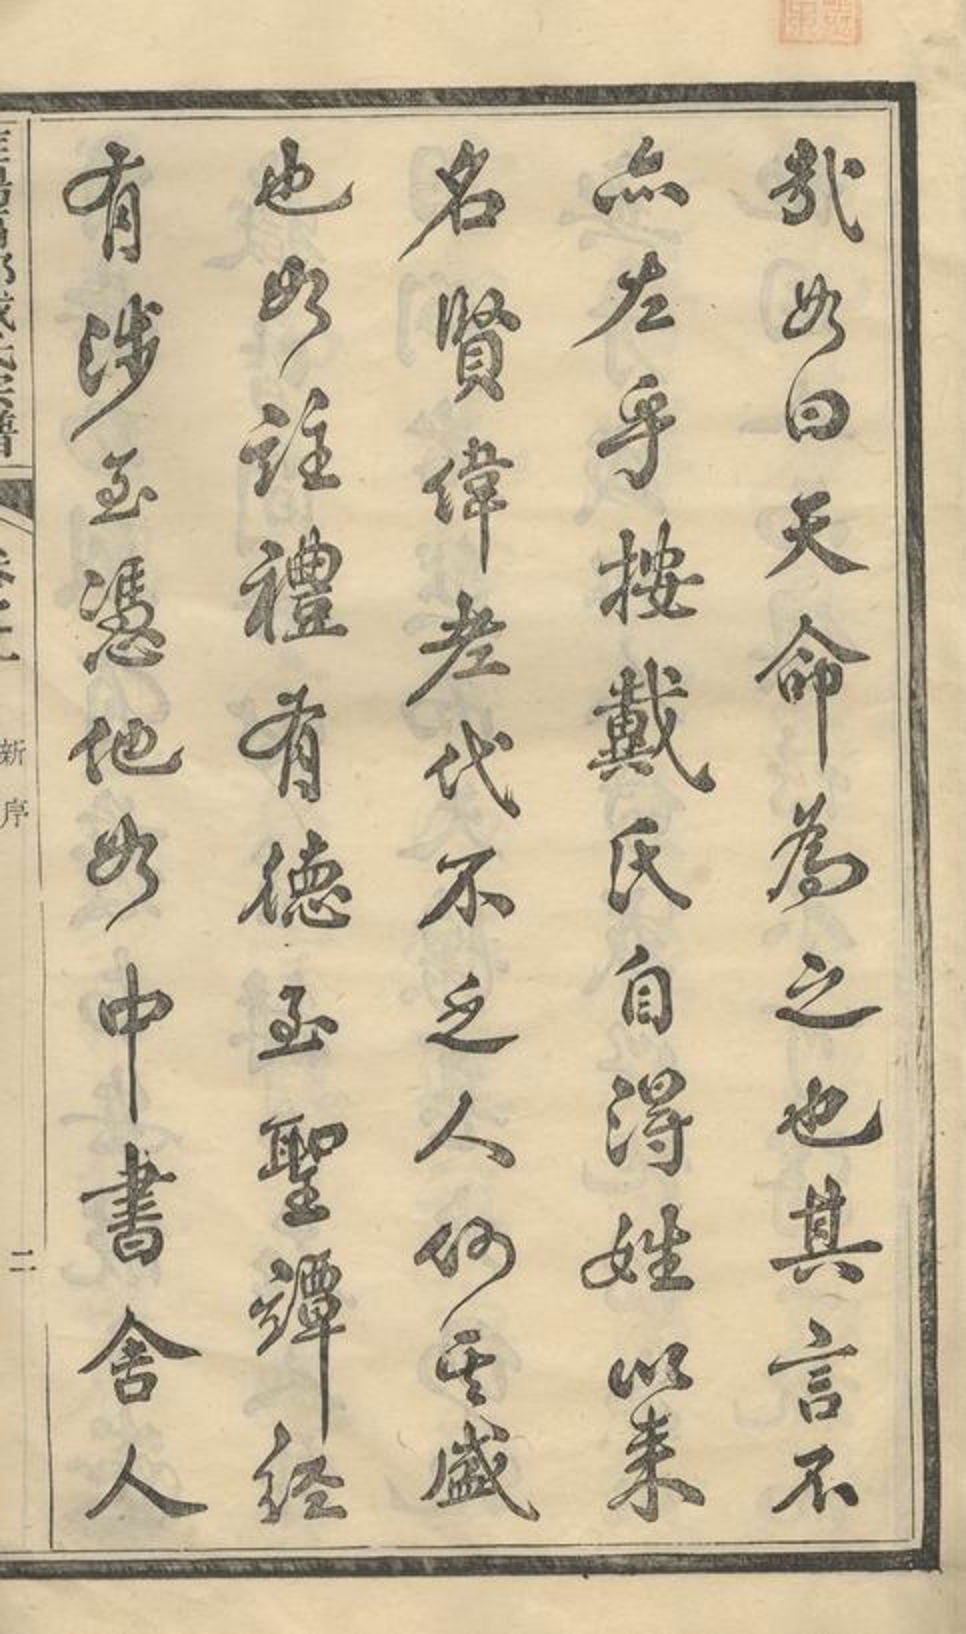 哉如曰天命為之也其言不
亦左乎按戴氏自得姓以来
名賢偉老代不乏人何其盛
也如註禮有德至聖譚經
有涉至憑他如中書舍人
新序
二